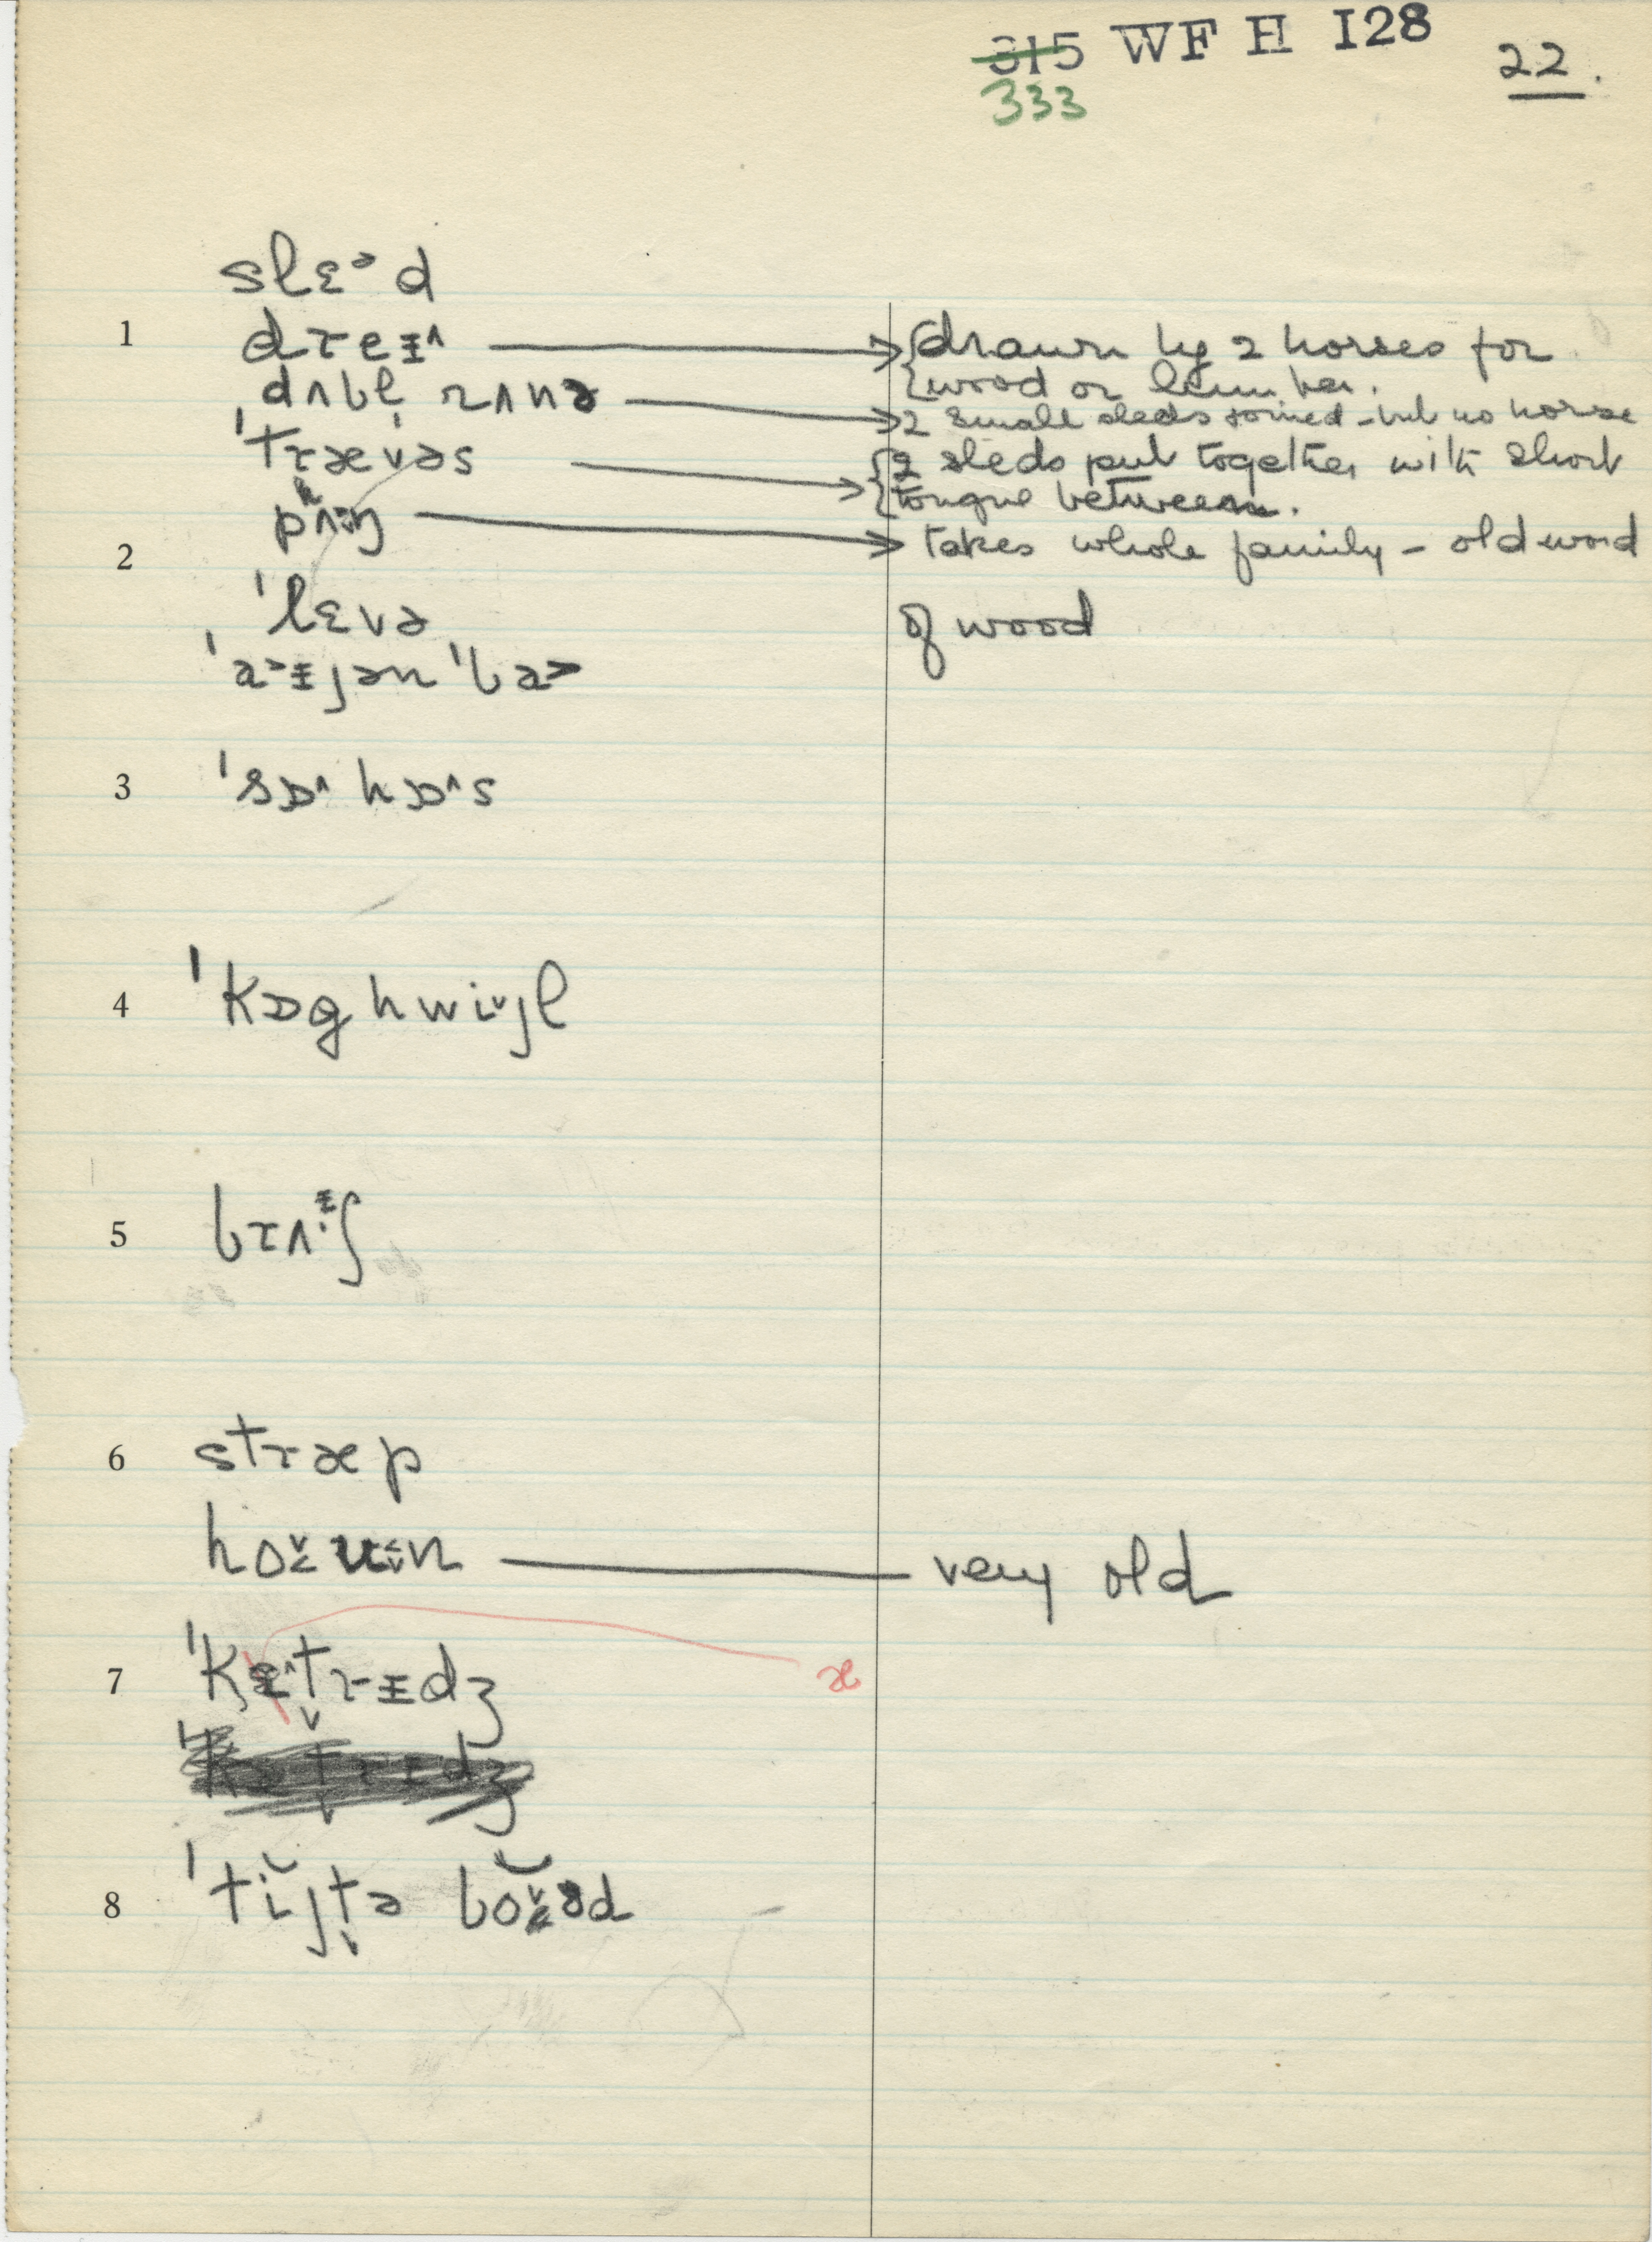 315 WF H 128 22.
333
slɛᵊd
1 dɹeɪ^ → {drawn by 2 horses for
{wood or lumber.
ˌdʌbl̩ ɹʌnə → 2 small sleds joined - but no horse
ˈtɹævəs → {2 sleds put together with short
{tongue between.
pʌŋ → takes whole family - old word
2
ˈlɛvə of wood
ˈaɪjən ˈba
3 ˈsɒ^hɒ^s
4 ˈkɒghwijl
5 bɹʌᶤʃ
6 stɹæp
very old
7 ˈkætɹɪdʒ
æ
8 ˈtijtə